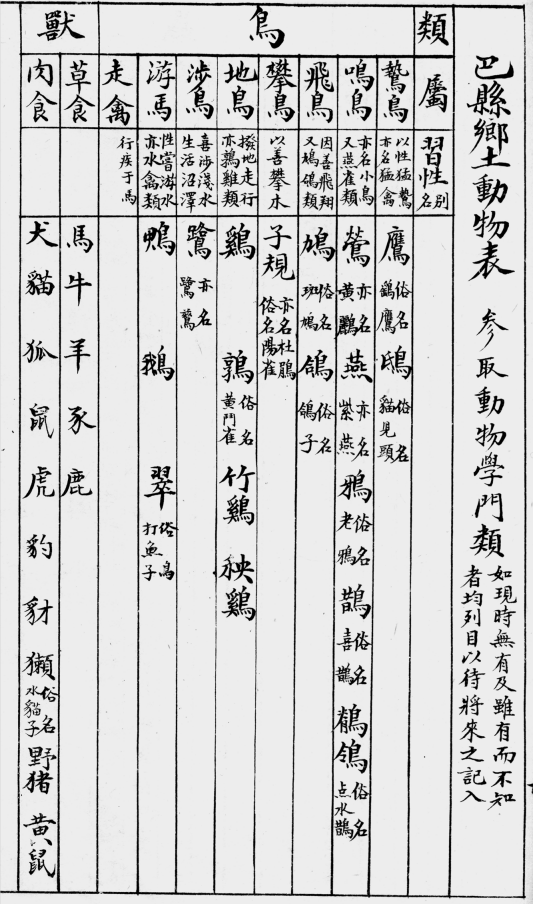 巴縣鄉土動物表 參取動物學門類 如現時無有及雖有而不知者均列目以待將來之記入
類 屬 習性 別名
鳥 鷙鳥 以性猛鷙 亦名猛禽 鷹 俗名鷂鷹 鴟 俗名貓兒頭
鳴鳥 亦名小鳥 又燕雀類 鶯 亦名黃鸝 燕 亦名紫燕 鴉 俗名老鴉 鵲 俗名喜鵲 鶺鴒 俗名点水鵲
飛鳥 因善飛翔 又鳩鴿類 鳩 俗名 鴿 俗名鴿子
攀鳥 以善攀木 子規 亦名杜鵑 俗名陽雀
地鳥 撥地走行 亦鶉雞類 鷄 鶉 俗名黃門雀 竹鷄 秧鷄
涉鳥 喜涉淺水 生活沼澤 鷺 亦名鷺鷥
游馬 性嘗游水 亦水禽類 鴨 鵝 翠 俗名打魚子
走禽 行疾于馬
獸 草食 馬 牛 羊 豕 鹿
肉食 犬 貓 狐 鼠 虎 豹 豺 獺 俗名水貓子 野猪 黄鼠